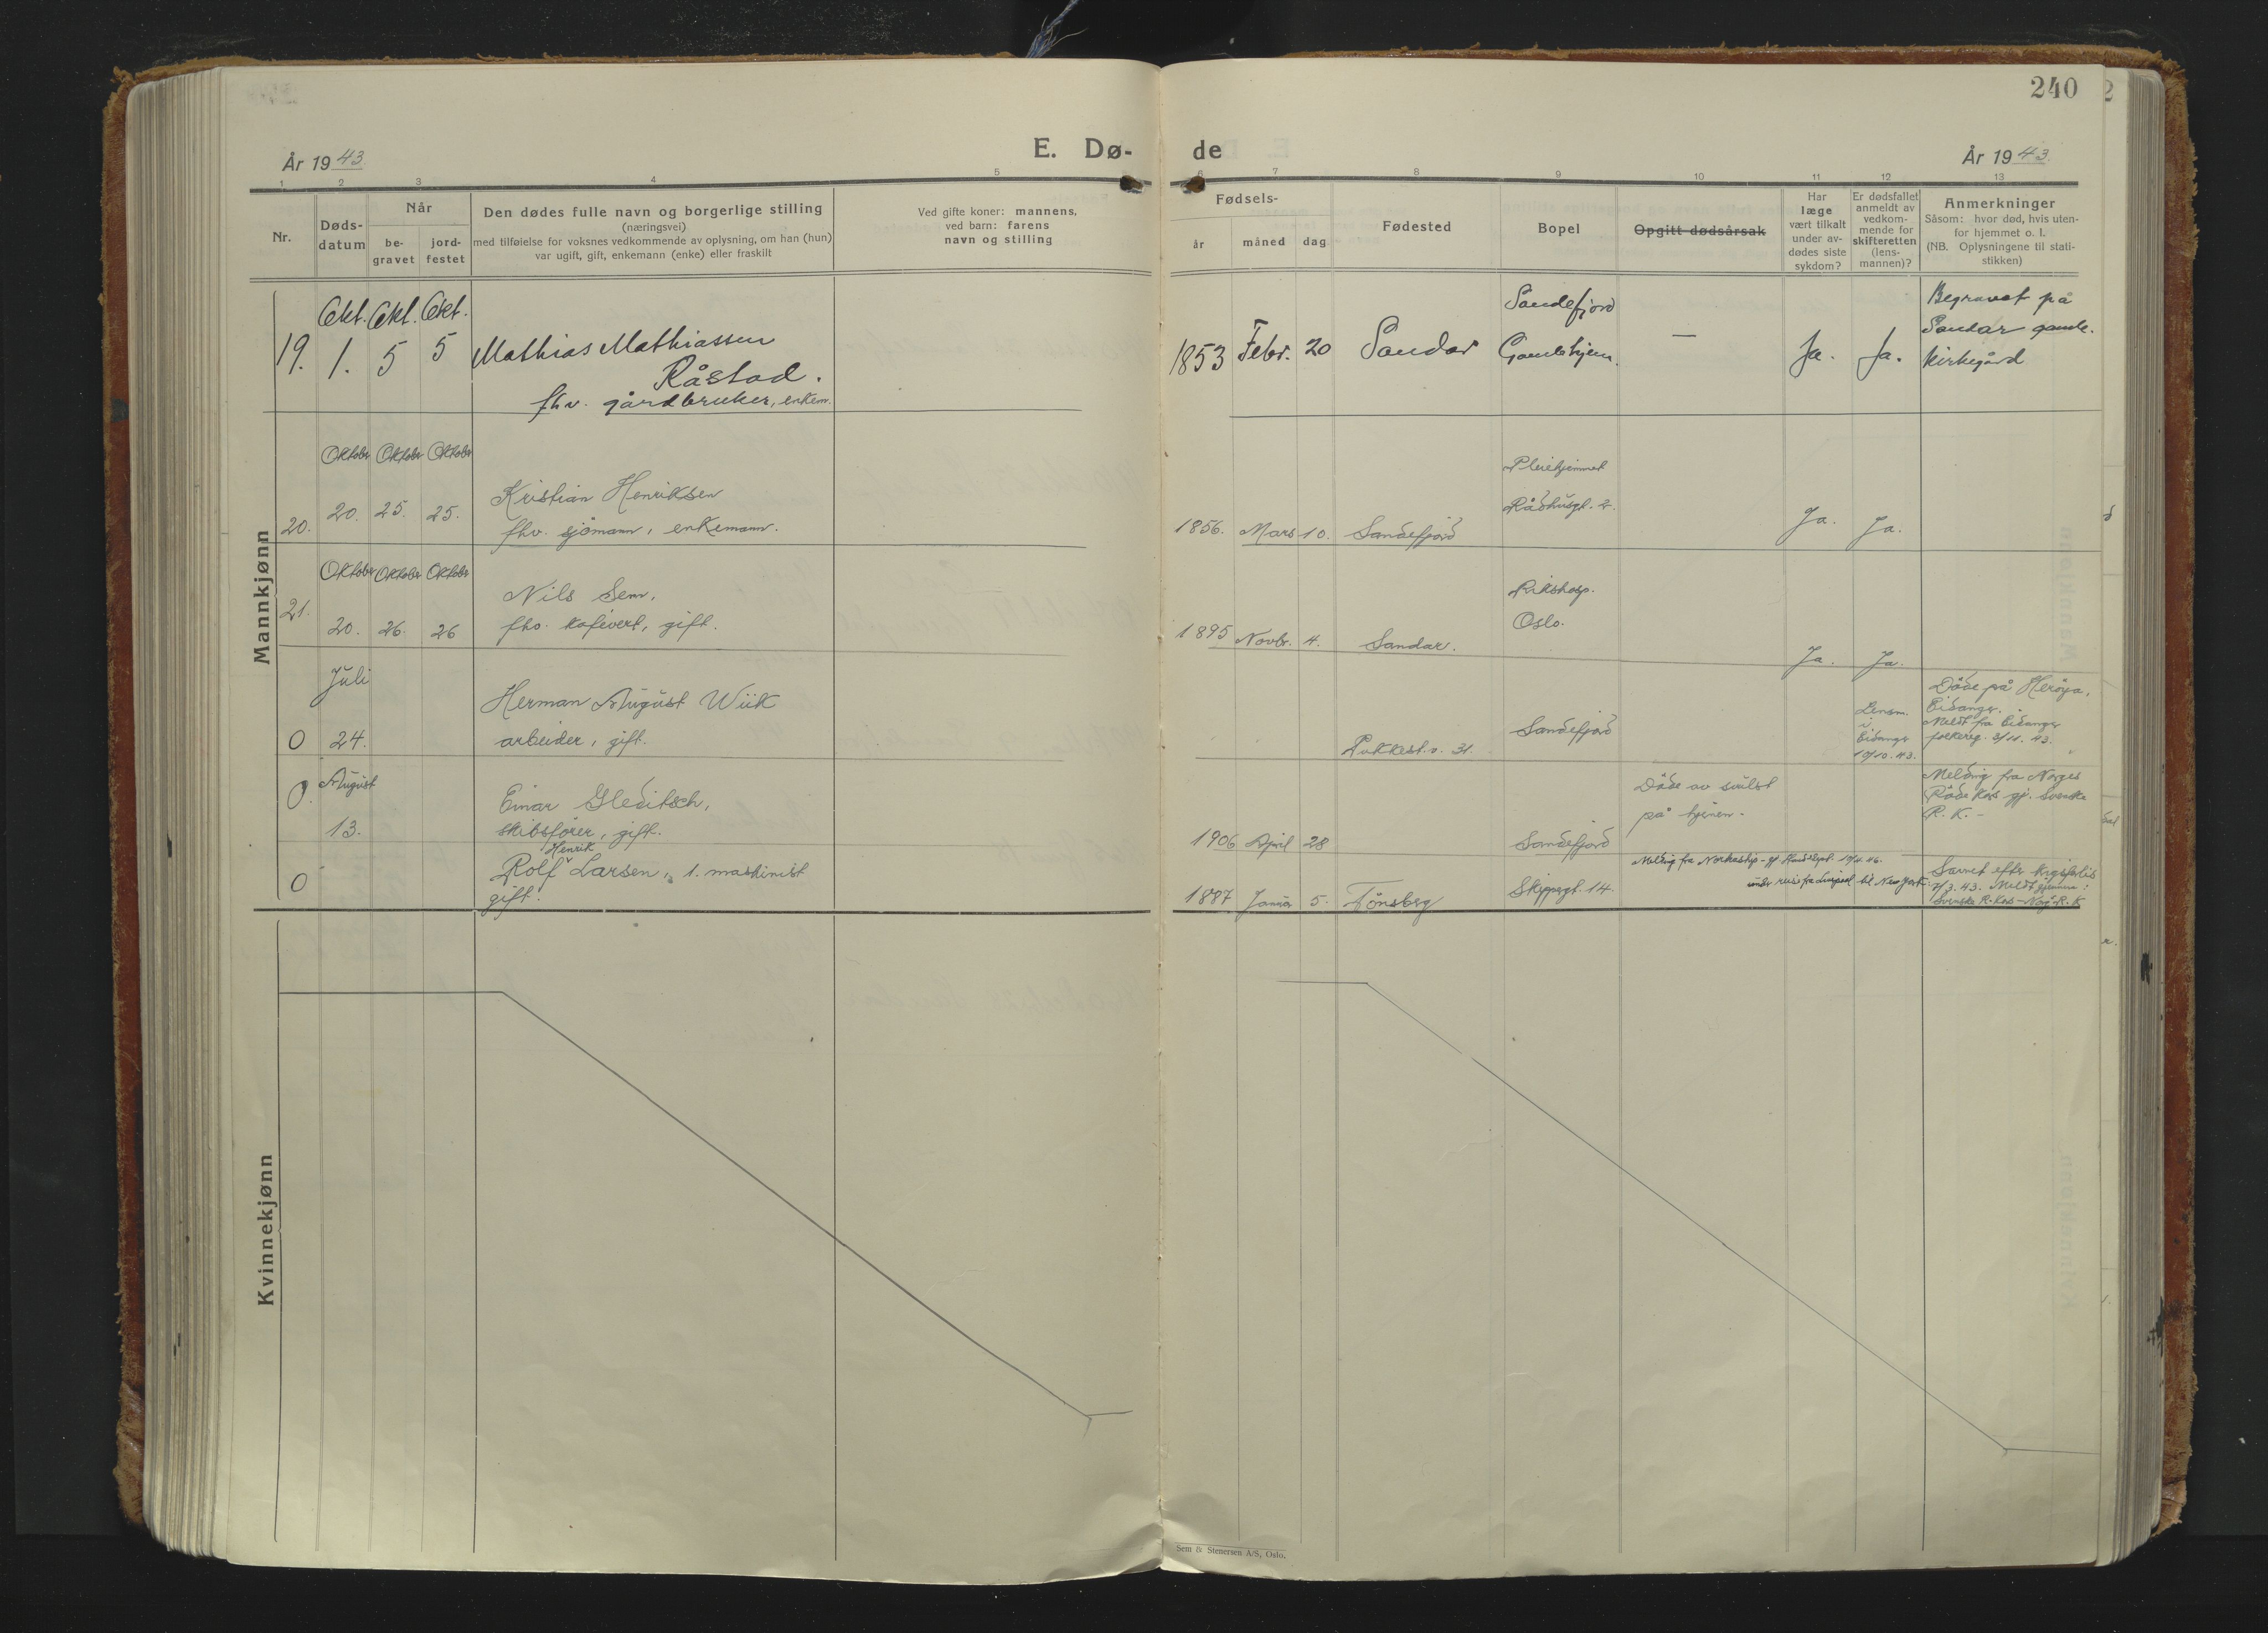 240
År 1943.
E. Dø-
de
År 1943.
1 2 3 4 5 6 7 8 9 10 11 12 13
Nr.
Døds-
datum
Når
be-
gravet
jord-
festet
Den dødes fulle navn og borgerlige stilling
(næringsvei)
med tilføielse for voksnes vedkommende av oplysning, om han (hun)
var ugift, gift, enkemann (enke) eller fraskilt
Ved gifte koner: mannens,
ved barn: farens
navn og stilling
Fødsels-
år
måned
dag
Fødested
Bopel
Opgitt dødsårsak
Har
læge
vært tilkalt
under av-
dødes siste
sykdom?
Er dødsfallet
anmeldt av
vedkom-
mende for
skifteretten
(lens-
mannen)?
Anmerkninger
Såsom: hvor død, hvis uten-
for hjemmet o. l.
(NB. Oplysningene til stati-
stikken)
Mannkjønn
19.
Okt. Okt. Okt.
1. 5 5
Mathias Mathiassen
Råstad.
fhv. gårdbruker, enkem.
1853 Febr. 20
Sandar
Sandefjord
Gamlehjem.
—
Ja. Ja.
Begravet på
Sandar gamle.
kirkegård
20.
Oktober Oktober Oktober
20. 25. 25.
Kristian Henriksen
fhv. sjömann, enkemann.
1856. Mars 10.
Sandefjord
Pleiehjemmet
Rådhusgt. 2.
Ja. Ja.
21.
Oktober Oktober Oktober
20. 26. 26
Nils Sem,
fhv. kafévert, gift.
1895 Novbr. 4.
Sandar.
Rikshosp.
Oslo.
Ja. Ja.
0
Juli
24.
Herman August Wiik
arbeider, gift.
Pukkest.v. 31.
Sandefjord
Lensm.
i
Eidanger
10/10.43.
Döde på Heröya,
Eidanger.
Meldt fra Eidanger
folkereg. 2/11. 43.
0.
August
13.
Einar Gleditsch,
skibsförer, gift.
1906 April 28
Sandefjord
Döde av svulst
på hjernen.
Melding fra Norges
Röde Kors gj. Svenske
R. K. -
0
Rolf Henrik Larsen, 1. maskinist
gift.
1887 Januar 5.
Tönsberg
Skippergt. 14.
Melding fra Nortraship - gj.
under reise fra Liverpool til New York.
Savnet efter krigsforlis
7/3. 43. Meldt gjennem:
Svenske R. Kors - Norg. R. K
Kvinnekjønn
Sem & Stenersen A/S, Oslo.